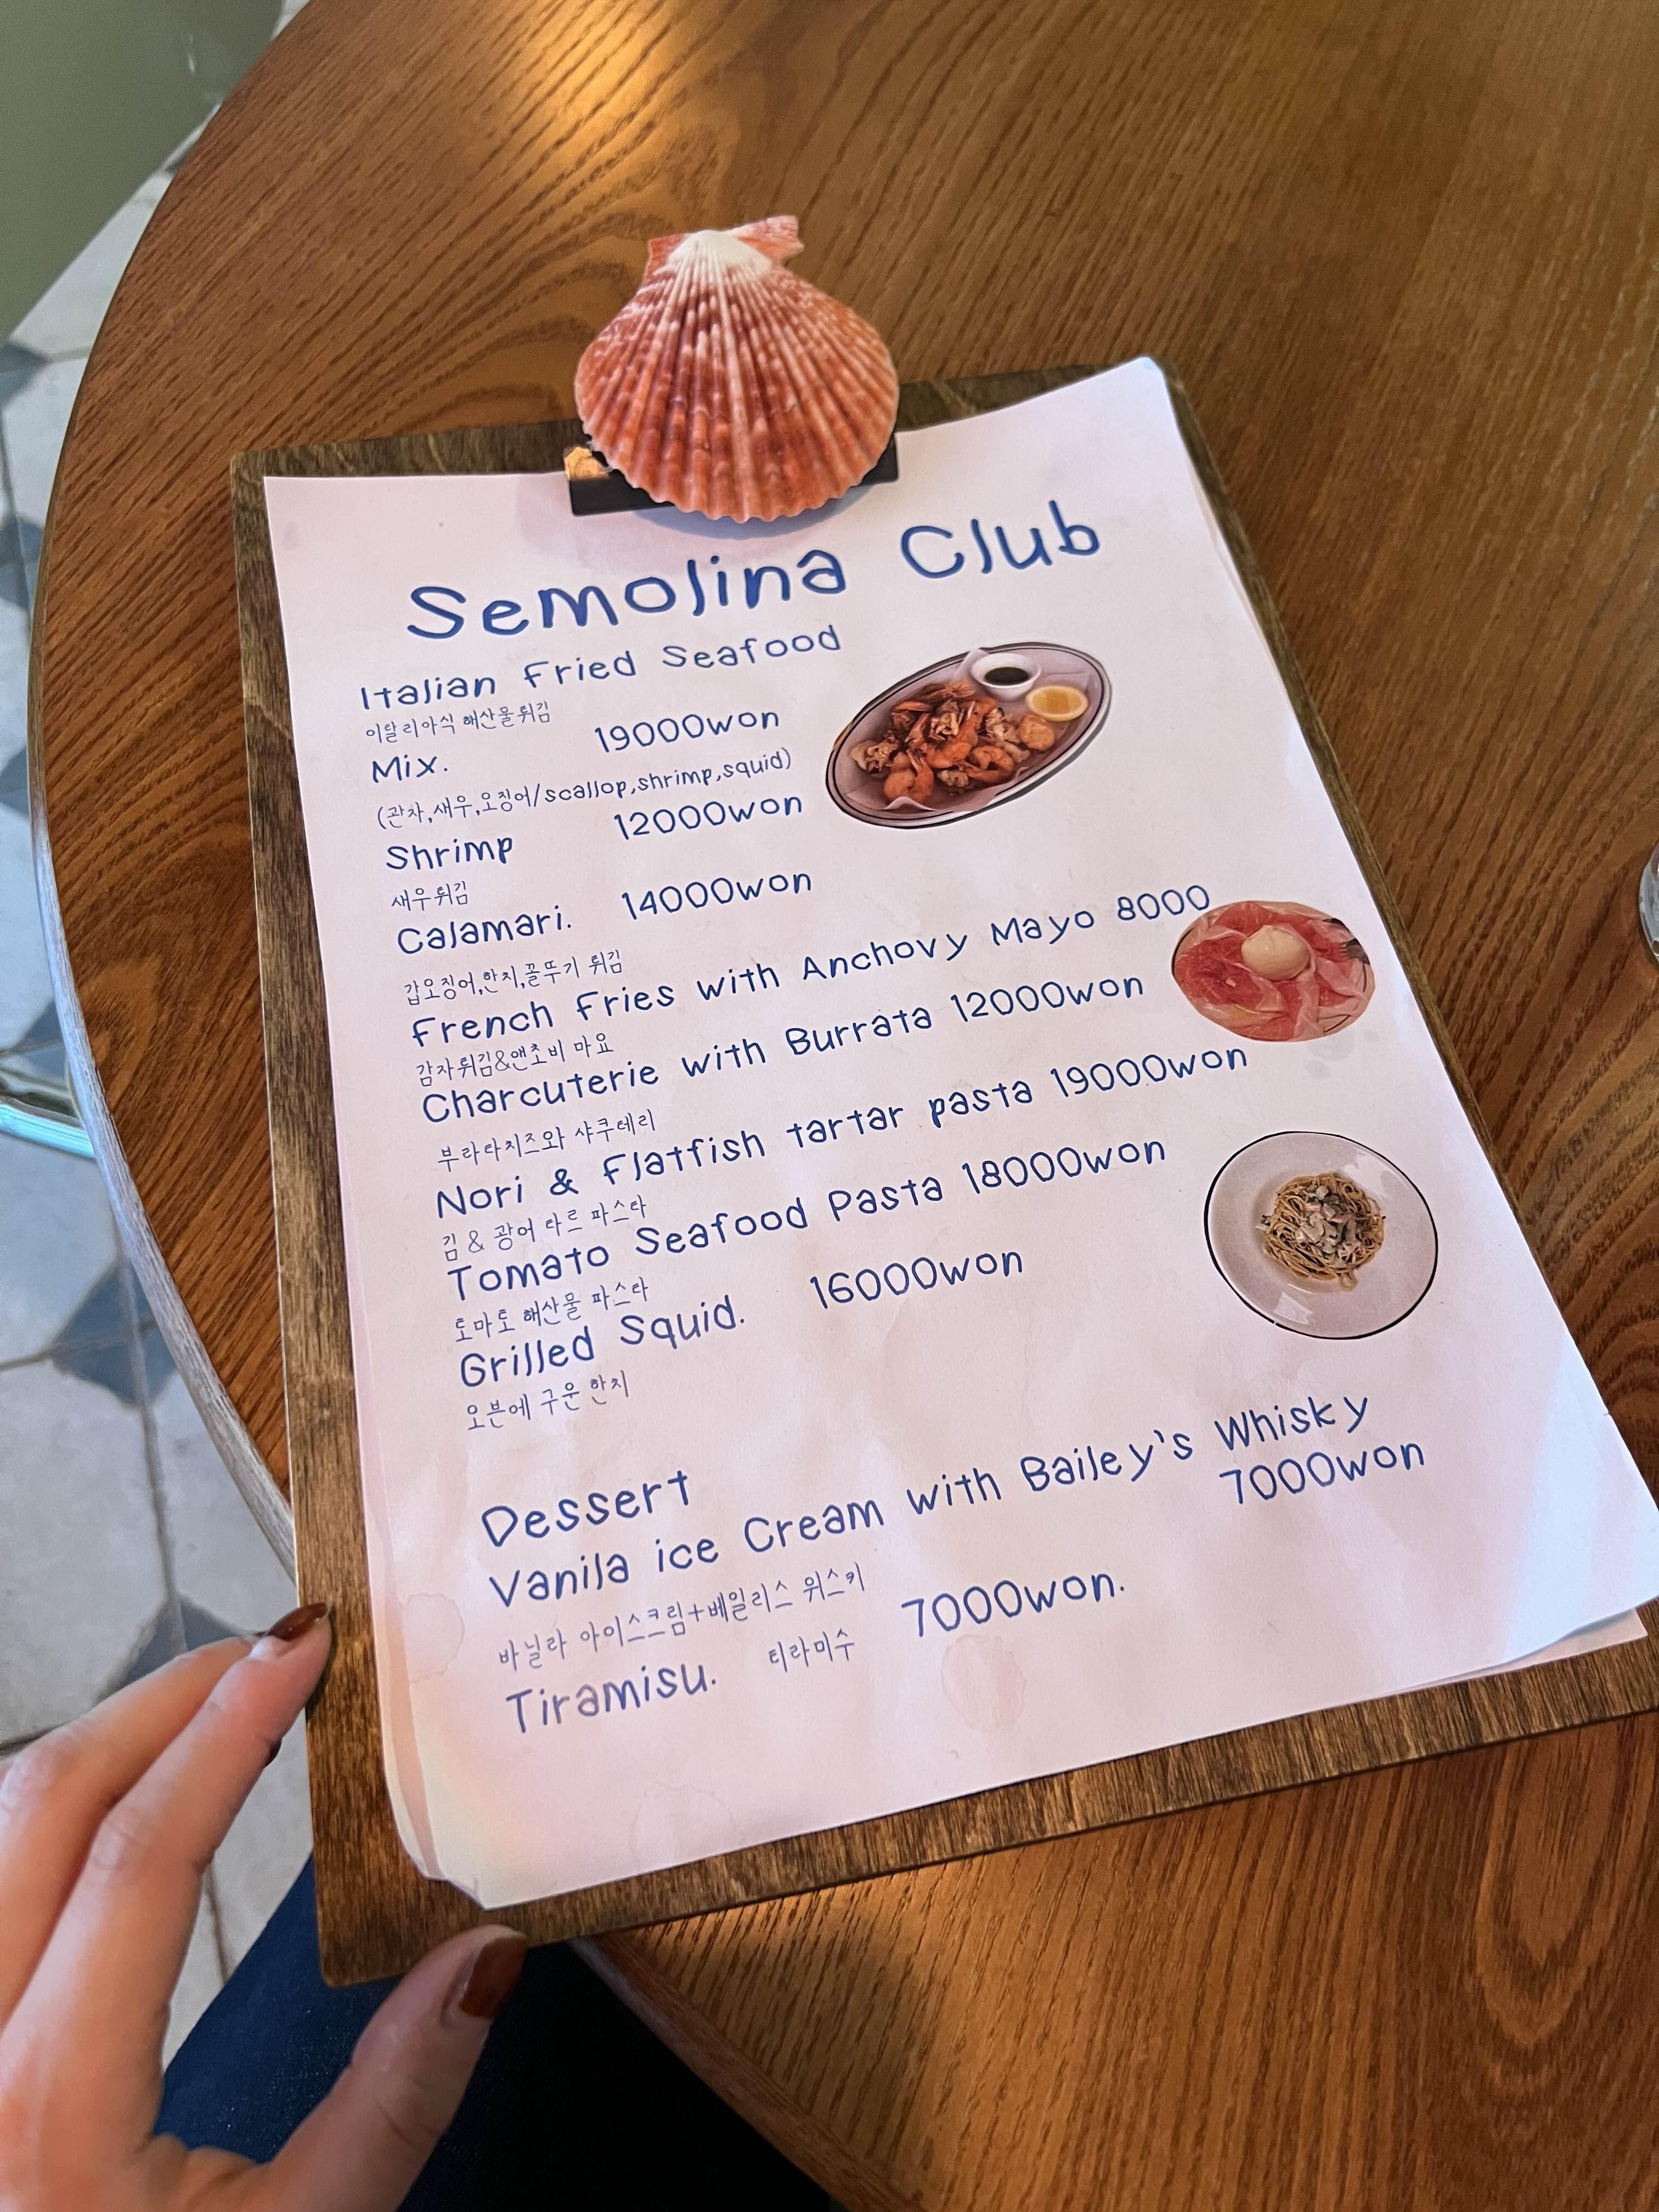 Semolina Club
Italian Fried Seafood
이탈리아식 해산물튀김
Mix. 19000won
(관자,새우,오징어/scallop,shrimp,squid)
Shrimp 12000won
새우튀김
Calamari. 14000won
갑오징어,한치,꼴뚜기 튀김
French Fries with Anchovy Mayo 8000
감자튀김&앤초비 마요
Charcuterie with Burrata 12000won
부라타치즈와 샤쿠테리
Nori & Flatfish tartar pasta 19000won
김 & 광어 타르 파스타
Tomato Seafood Pasta 18000won
토마토 해산물 파스타
Grilled Squid. 16000won
오븐에 구운 한치
Dessert
Vanila ice Cream with Bailey's Whisky
7000won
바닐라 아이스크림+베일리스 위스키
Tiramisu. 티라미수 7000won.